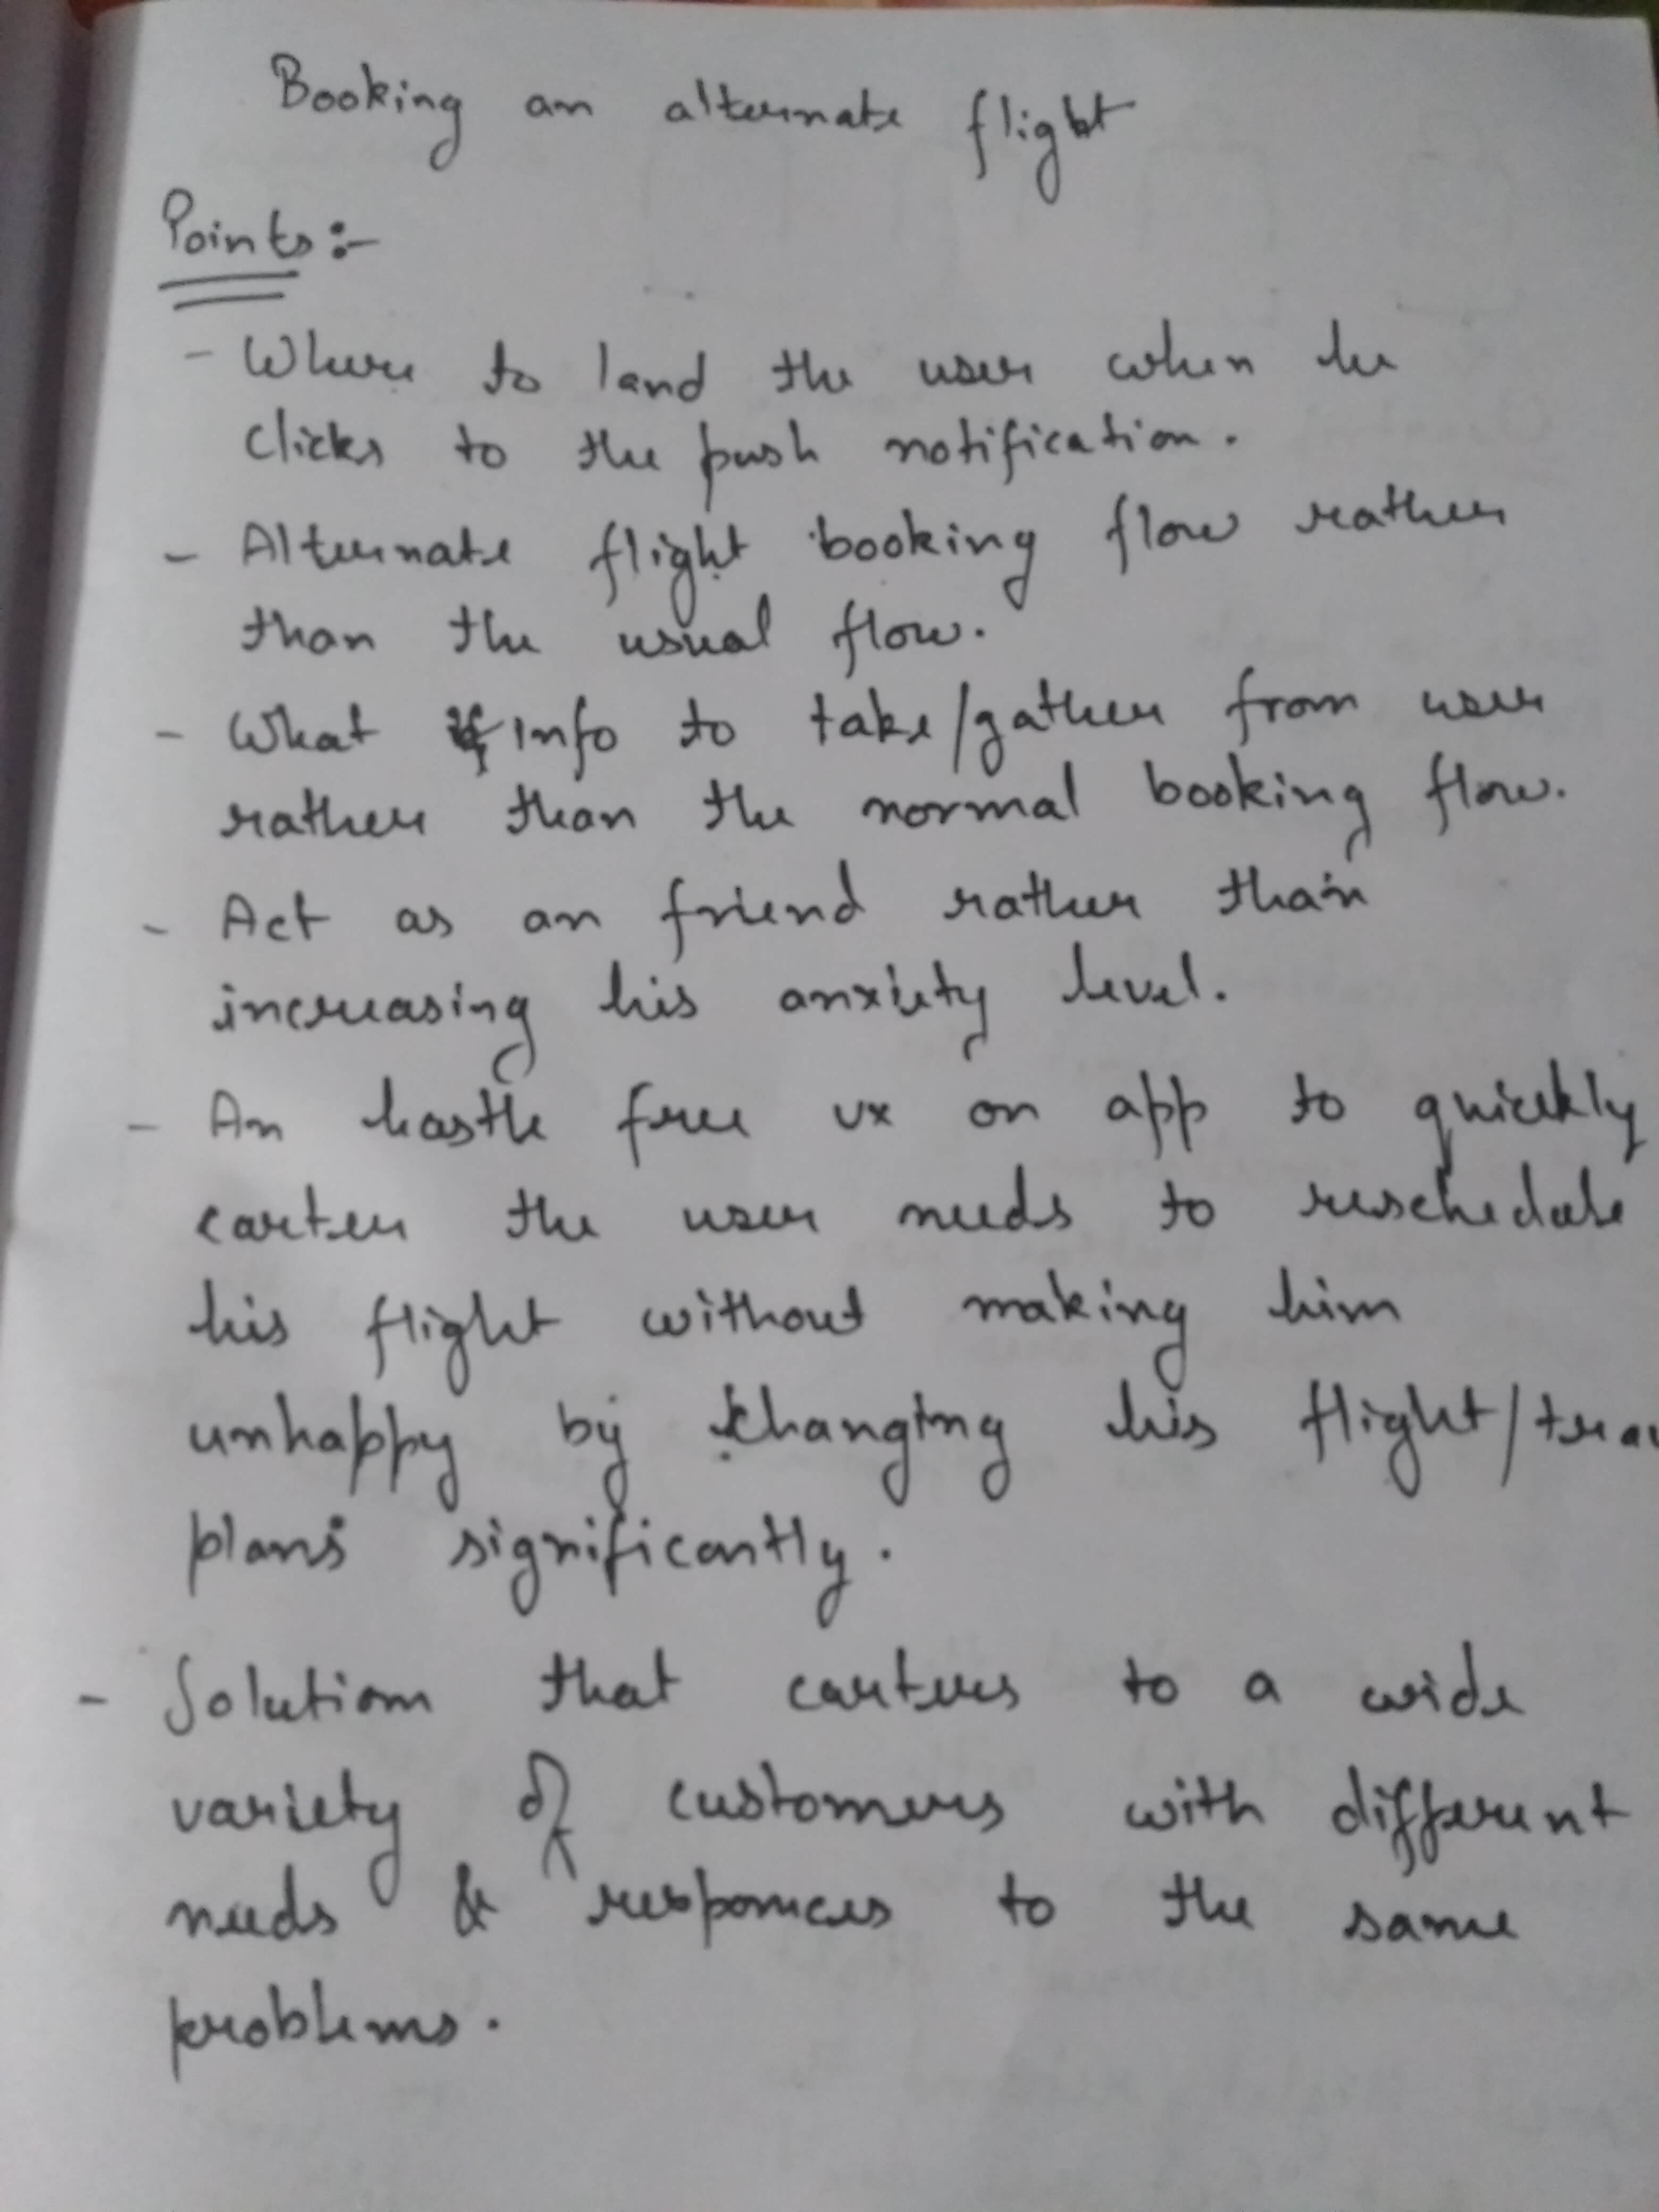 Booking an alternate flight
Points :-
- Where to land the user when he
clicks to the push notification.
- Alternate flight booking flow rather
than the usual flow.
- What info to take/gather from user
rather than the normal booking flow.
- Act as an friend rather than
increasing his anxiety level.
- An hastle free ux on app to quickly
carter the user needs to reschedule
his flight without making him
unhappy by changing his flight/
plans significantly.
- Solution that carters to a wide
variety of customers with different
needs & responces to the same
problems.